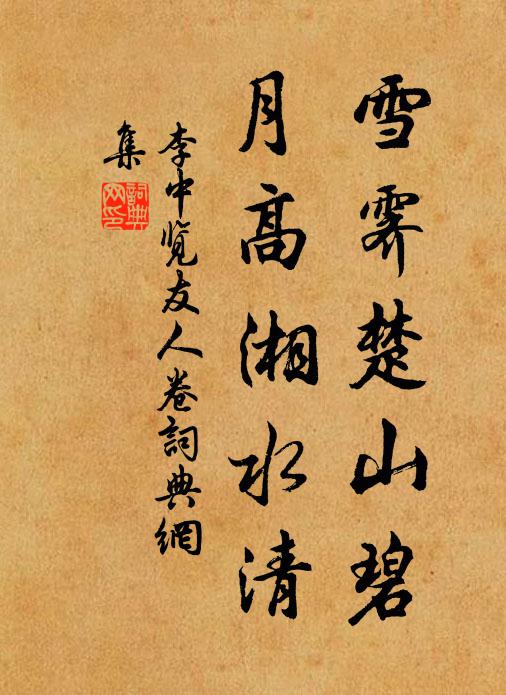 雪霁楚山碧
月高湘水清
李中览友人卷詞典網
集
詞典
网印